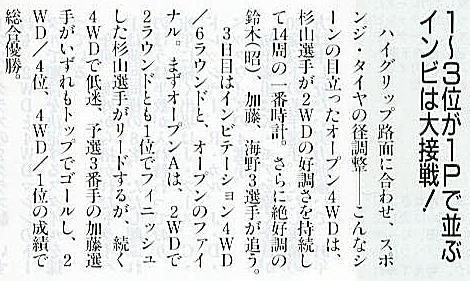 1〜3位が1Pで並ぶ
インビは大接戦！
ハイグリップ路面に合わせ、スポ
ンジ・タイヤの径調整——こんなシ
ーンの目立ったオープン4WDは、
杉山選手が2WDの好調さを持続し
て14周の一番時計。さらに絶好調の
鈴木(昭)、加藤、海野3選手が追う。
3日目はインビテーション4WD
/6ラウンドと、オープンのファイ
ナル。まずオープンAは、2WDで
2ラウンドとも1位でフィニッシュ
した杉山選手がリードするが、続く
4WDで低迷、予選3番手の加藤選
手がいずれもトップでゴールし、2
WD/4位、4WD/1位の成績で
総合優勝。